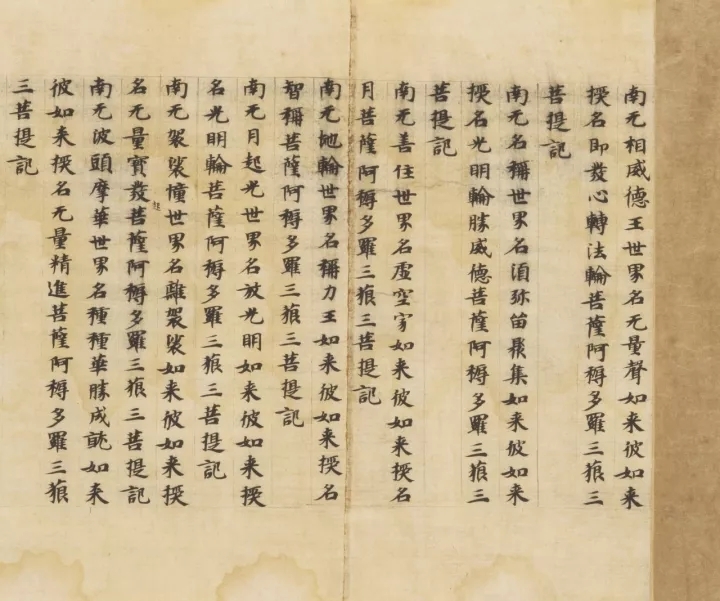 南无相威德王世界名无量聲如来彼如来
授名即發心轉法輪菩薩阿耨多羅三藐三
菩提記
南无名稱世界名須弥留聚集如来彼如来
授名光明輪勝威德菩薩阿耨多羅三藐三
菩提記
南无善住世界名虚空寂如来彼如来授名
月菩薩阿耨多羅三藐三菩提記
南无地輪世界名稱力王如来彼如来授名
智稱菩薩阿耨多羅三藐三菩提記
南无月起光世界名放光明如来彼如来授
名光明輪菩薩阿耨多羅三藐三菩提記
南无袈裟幢世界名離袈裟如来彼如来授
名无量寶發菩薩阿耨多羅三藐三菩提記
南无波頭摩華世界名種種華勝成就如来
彼如来授名无量精進菩薩阿耨多羅三藐
三菩提記